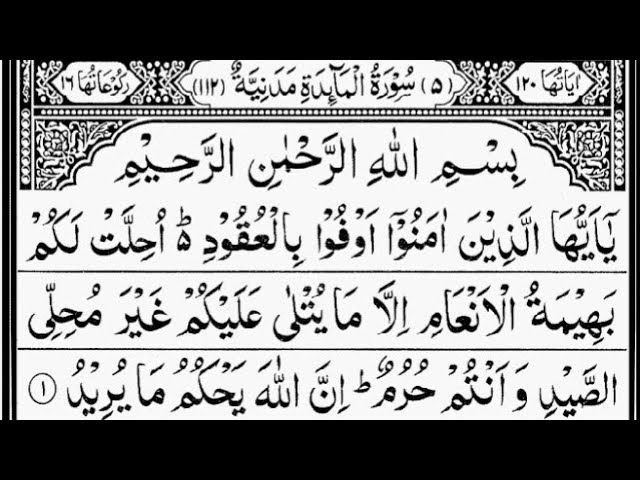 اٰيَاتُهَا ١٢٠ (٥) سُوْرَةُ الْمَآئِدَةِ مَدَنِيَّةٌ (١١٢) رُكُوْعَاتُهَا ١٦
بِسْمِ اللّٰهِ الرَّحْمٰنِ الرَّحِيْمِ
يٰۤاَيُّهَا الَّذِيْنَ اٰمَنُوْۤا اَوْفُوْا بِالْعُقُوْدِ ؕ اُحِلَّتْ لَكُمْ
بَهِيْمَةُ الْاَنْعَامِ اِلَّا مَا يُتْلٰى عَلَيْكُمْ غَيْرَ مُحِلِّى
الصَّيْدِ وَ اَنْتُمْ حُرُمٌ ؕ اِنَّ اللّٰهَ يَحْكُمُ مَا يُرِيْدُ ١